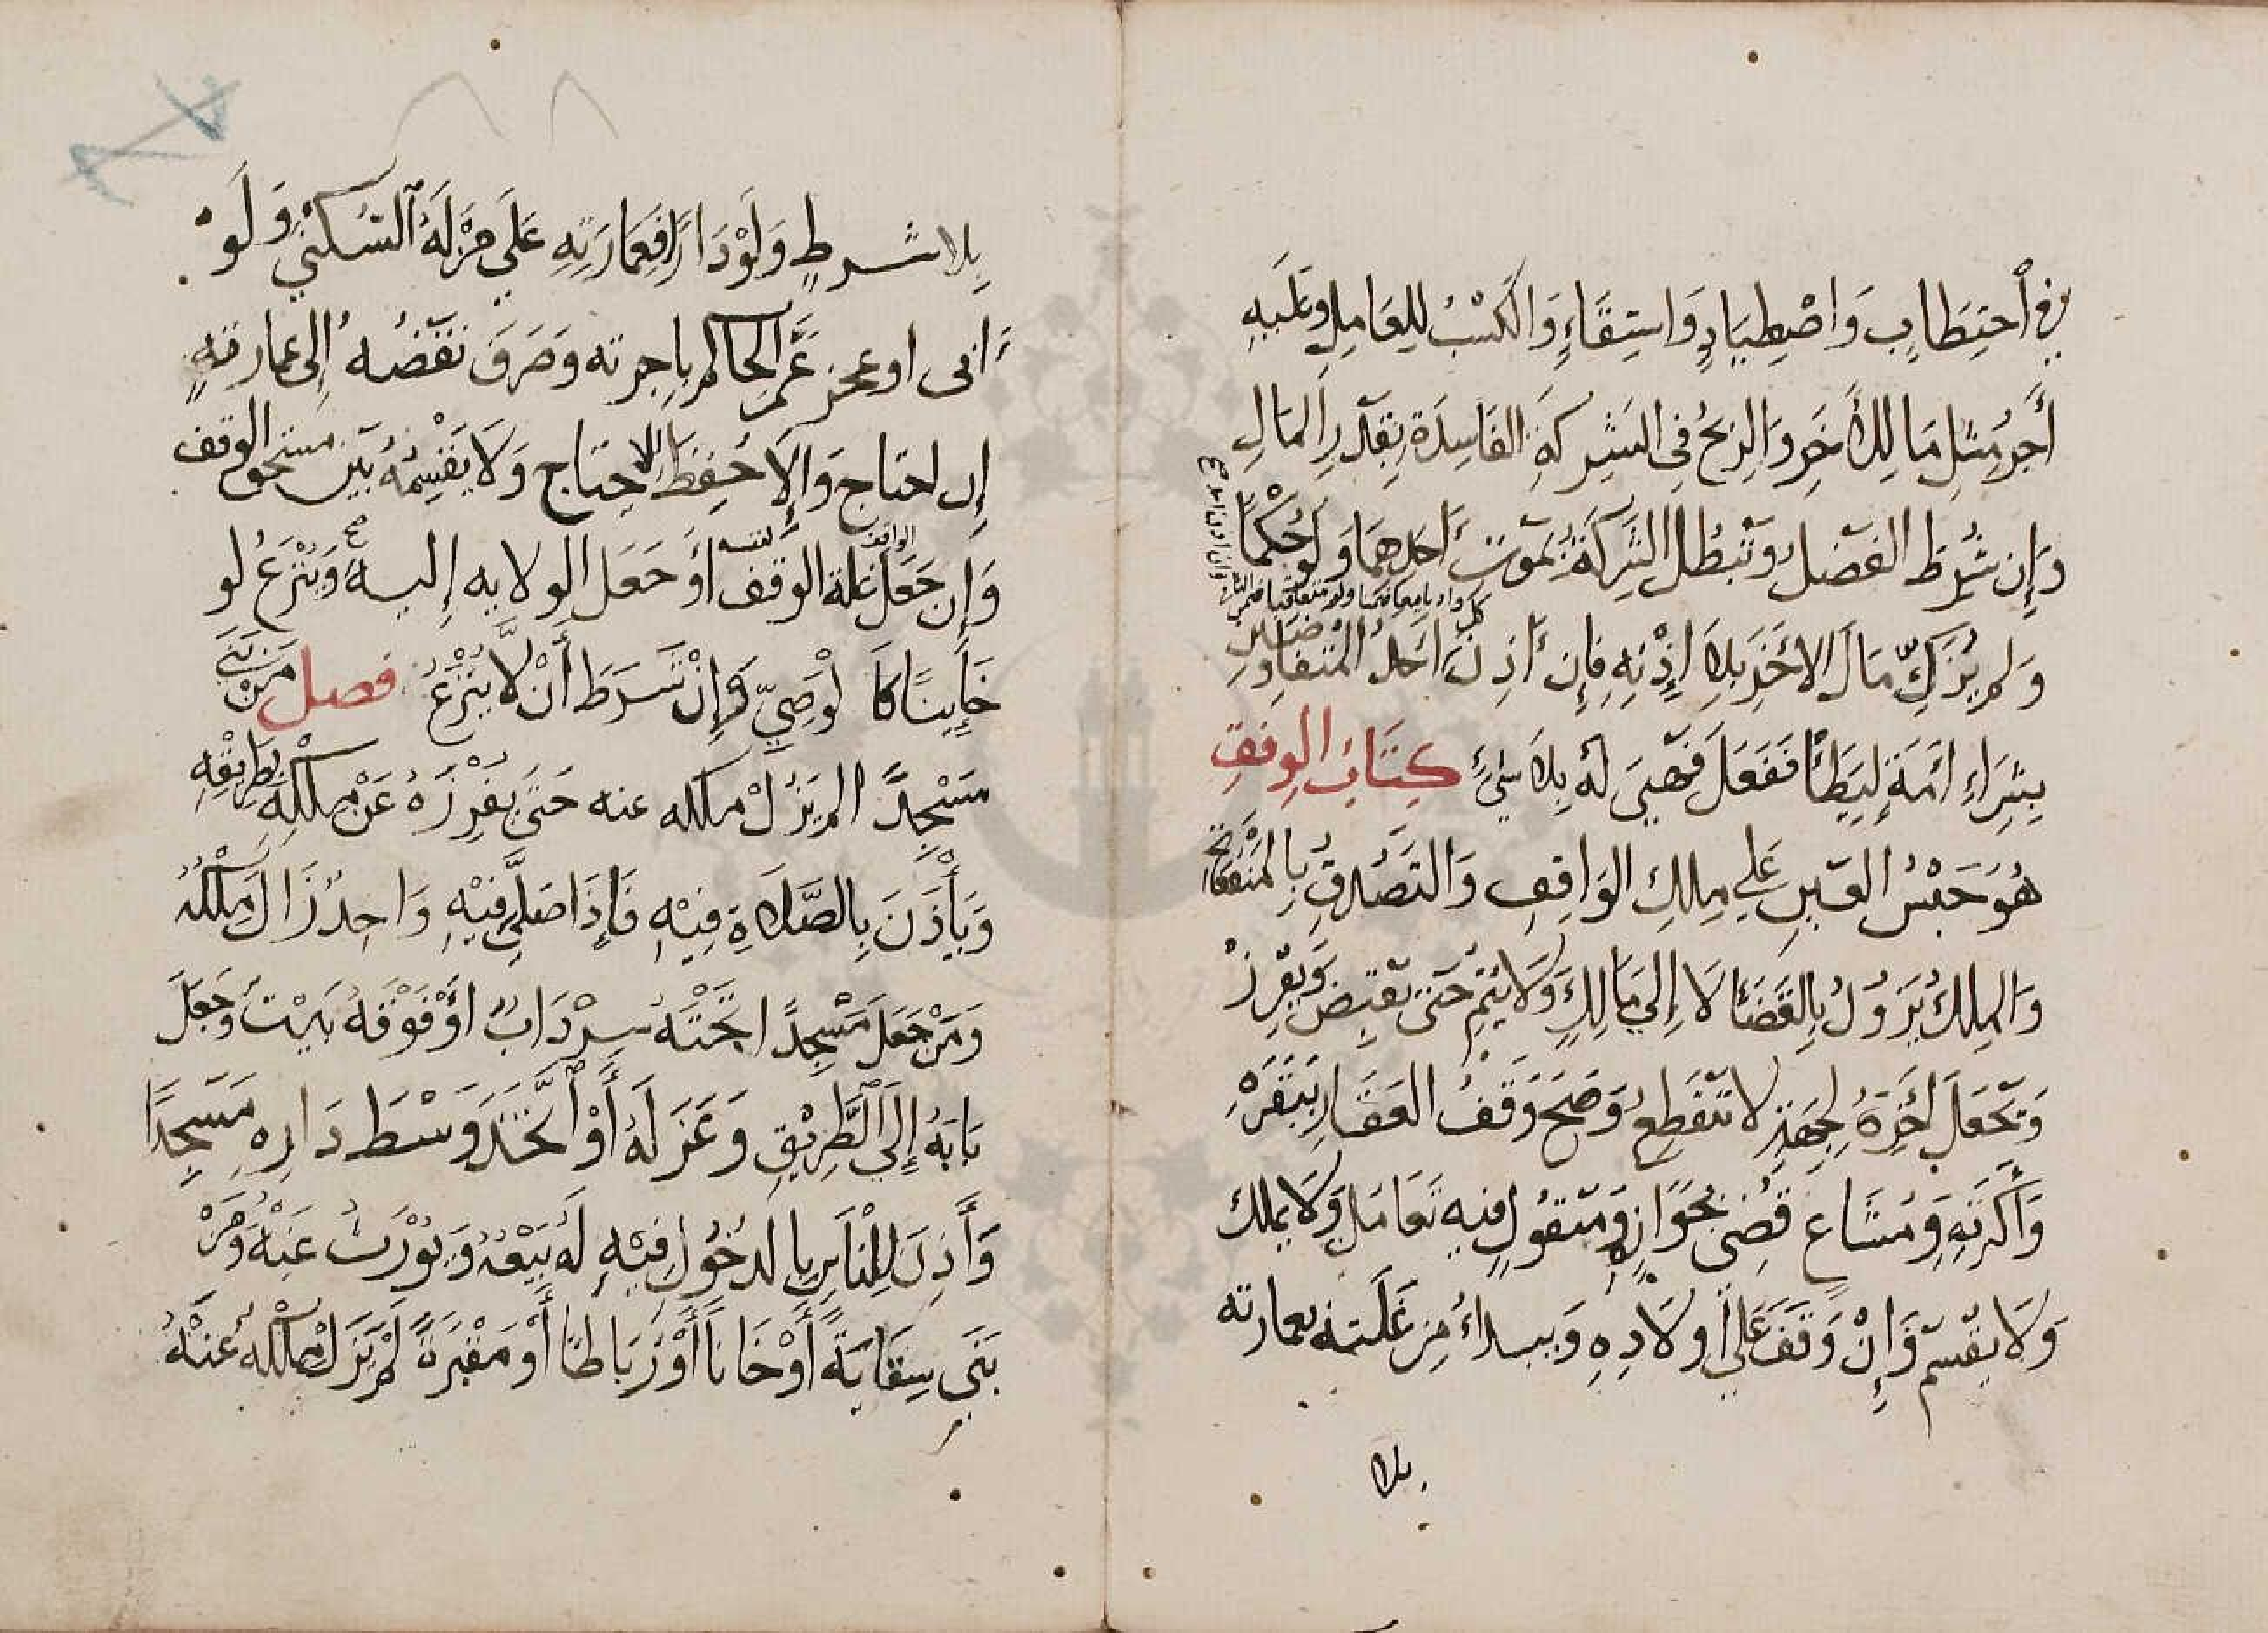 في احتِطَابٍ وَاصْطِيَادٍ وَاسْتِقَاءٍ وَالكَسْبُ لِلعَامِلِ وعَلَيهِ
أَجرُ مِثلِ مَا لِلأَخَرِ وَالرِبحُ فِي الشِركَةِ الفَاسِدَةِ بِقَدْرِ المَالِ
وَإِن شُرِطَ الفَضلُ وَتَبطُل الشِركَةُ بِمَوت أَحَدِهمَا وَلَو حُكْمًا
وَلم يُزَكِّ مَالَ الاخَرِ بِلَا إِذْنِهِ فَإِن
وان ادى ا مرح
كل واديا معا ضمنا ولو متعاقبا ضمن الثانى
أَذِنَ احَدُ المُتَفَاوِضَيْنِ
بِشِرَاءِ امَةٍ لِيَطَأَ فَفَعَلَ فَهِيَ لَهُ بِلَا شَيْءٍ كِتَابُ الوقفِ
هُوَ حَبْسُ العَينِ عَلي مِلكِ الوَاقِفِ وَالتَصَدُقِ بِالمَنْفَعَةِ
وَالمِلكُ يَزُولُ بِالقَضَا لَا إِلي مَالِكٍ وَلَا يَتِمّ حَتى يقبِضَ وَيفرِزْ
وَيَجْعَل أخِرَهُ لِجِهَةٍ لا تنقَطِع وَصَحَ وَقفُ العَقَارِ بِبَقَرِهِ
وَأَكَرَتِهِ وَمُشَاعٍ قُضِيَ بجَوَازِهِ وَمَنقُولٍ فيهِ تَعَامُل وَلَا يملك
وَلَا يقسَم وَإِنْ وَقَفَ عَلي أولَادِهِ وَيبداءُ مِن غَلته بعمارته
بلا
بِلا شرطٍ وَلَوْ دَارًا فَعِمَارَتِهِ عَلَي مَنْ لَهُ السُكنَي وَلَو
اَبى او عجز عَمَّرَ الحَاكم باجرته وصَرَفَ نَقْضُهُ إِلى عمارتهِ
إِن احتَاج وَإِلَا حُفِظَ للاحتِيَاج وَلَا يَقْسِمُهُ بَيْنَ مستحق الوقف
وَإِن جَعَلَ الواقف غلة الوقف لنفسه أَو جَعَلَ الولايه إليه صح وَيُنْزَعُ لو
خَايِنًا كَالوَصِيِّ وَإِنْ شَرَطَ أَنْ لَّا يُنْزَعُ فصل مَنْ بَنَي
مَسْجِدًا لم يَزُلْ ملكه عنه حَتى يَفرِزَهُ عَنْ مِلكِهِ بِطَرِيْقِهِ
وَيَأْذَنَ بِالصَّلَاةِ فِيْهِ فَإِذَا صَلَّي فِيْهِ وَاحِدٌ زَالَ مِلْكُهُ
وَمَنْ جَعَلَ مَسْجِدًا تَحْتَهُ سِرْدَابٌ اَوْ فَوْقَهُ بَيْتٌ وَجَعَلَ
بَابَهُ إِلَي الطَّرِيْقِ وَعَزَلَهُ أَوْ اتَّخَذَ وَسْطَ دَارِهِ مَسْجِدًا
وَأَذِنَ لِلْنَاسِ بِالدخُولِ فِيْهِ لَه بَيْعُهُ وَيُوْرَثُ عَنْهُ وَمَنْ
بَنَي سِقَايَةً أَوْ خَانًا أَوْ رُبَاطًا أَوْ مَقْبَرَةً لَمْ يَزَلْ مِلكُهُ عَنْهُ